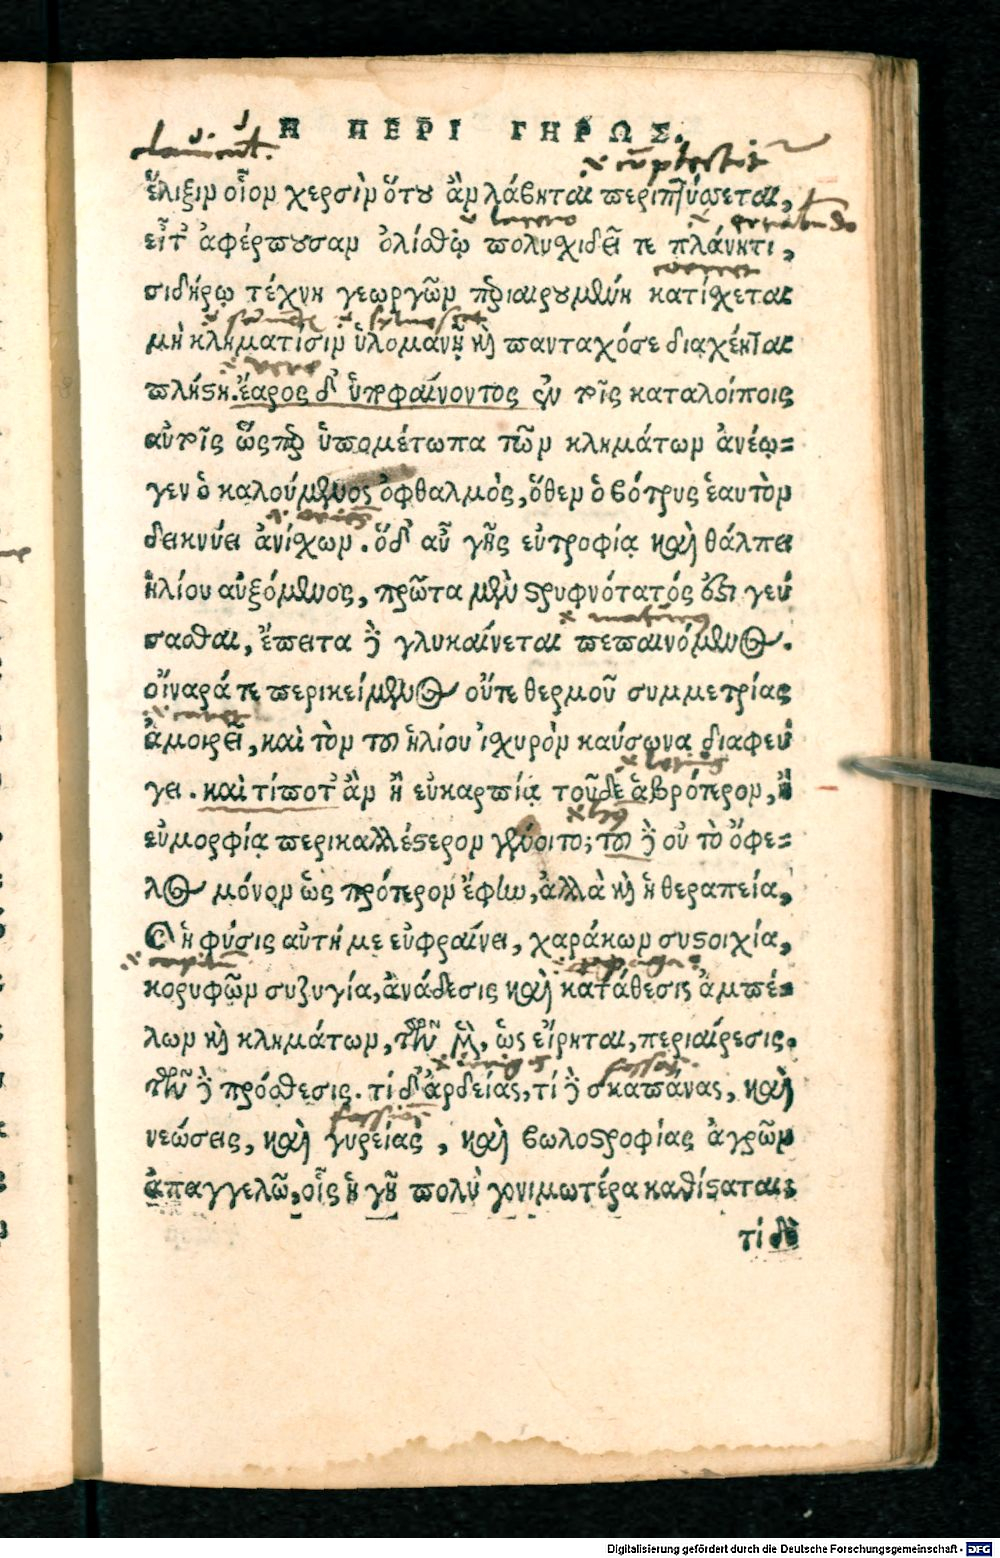 Η ΠΕΡΙ ΓΗΡΩΣ.
ἕλιξιν οἷον χερσὶν ὅτου ἂν λάβηται περιπτύσεται,
εἶτ' ἀφέρπουσαν ὀλίσθῳ πολυχιδεῖ τε πλάνητι,
σιδήρῳ τέχνη γεωργῶν περιαιρουμένη κατίσχεται
μὴ κληματίσιν ὑλομανῇ καὶ πανταχόσε διαχέηται
πλήστη. ἔαρος δ' ὑπερφαίνοντος ἐν τοῖς καταλοίποις
αὐτοῖς ὥσπερ ὑπομέτωπα τῶν κλημάτων ἀνέῳ=
γεν ὁ καλούμενος ὀφθαλμὸς, ὅθεν ὁ βότρυς ἑαυτὸν
δεικνύει ἀνίχων. ὅδ' αὖ γῆς εὐτροφίᾳ καὶ θάλπει
ἡλίου αὐξόμενος, πρῶτα μὲν στρυφνότατός ἐστι γεύ
σασθαι, ἔπειτα δὲ γλυκαίνεται πεπαινόμενος.
οἴναρά τε περικείμενος οὔτε θερμοῦ συμμετρίας
ἀμοιρεῖ, καὶ τὸν τοῦ ἡλίου ἰχυρὸν καύσωνα διαφεύ
γει. καὶ τίποτ' ἂν ἢ εὐκαρπίᾳ τοῦδε ἁβρότερον, ἢ
εὐμορφίᾳ περικαλλέστερον γένοιτο; τοῦ δὲ οὐ τὸ ὄφε=
λος μόνον ὡς πρότερον ἔφην, ἀλλὰ καὶ ἡ θεραπεία,
καὶ ἡ φύσις αὐτή με εὐφραίνει, χαράκων συστοιχία,
κορυφῶν συζυγία, ἀνάδεσις καὶ κατάθεσις ἀμπέ=
λων καὶ κλημάτων, τῶν μὲν, ὡς εἴρηται, περιαίρεσις.
τῶν δὲ πρόσθεσις. τί δ' ἀρδείας, τί δὲ σκαπάνας, καὶ
νεώσεις, καὶ γυρείας, καὶ βωλοστροφίας ἀγρῶν
ἀπαγγελῶ, οἷς ἡ γῆ πολὺ γονιμωτέρα καθίσταται;
τί δὲ
Digitalisierung gefördert durch die Deutsche Forschungsgemeinschaft - DFG